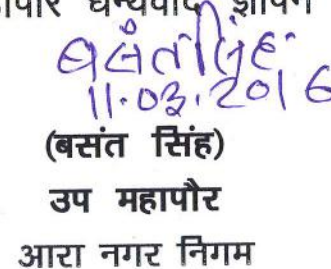 धन्यवाद ज्ञापन
बसंत सिंह
11.03.2016
(बसंत सिंह)
उप महापौर
आरा नगर निगम